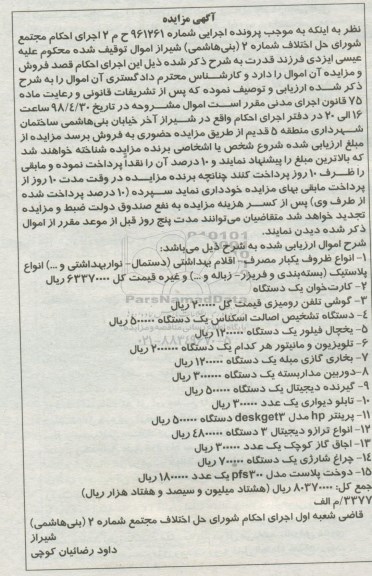 آگهی مزایده
نظر به اینکه به موجب پرونده اجرایی شماره ۹۶۱۲۶۱ ح م ۲ اجرای احکام مجتمع
شورای حل اختلاف شماره ۲ (بنی‌هاشمی) شیراز اموال توقیف شده محکوم علیه
عیسی ایزدی فرزند قدرت به شرح ذکر شده ذیل این اجرای احکام قصد فروش
و مزایده آن اموال را دارد و کارشناس محترم دادگستری آن اموال را به شرح
ذکر شده ارزیابی و توصیف نموده که پس از تشریفات قانونی و رعایت ماده
۷۵ قانون اجرای مدنی مقرر است اموال مشروحه در تاریخ ۹۸/۴/۳۰ ساعت
۱۶ الی ۲۰ در دفتر اجرای احکام واقع در شیراز آخر خیابان بنی‌هاشمی ساختمان
شهرداری منطقه ۵ قدیم از طریق مزایده حضوری به فروش برسد مزایده از
مبلغ ارزیابی شده شروع شخص یا اشخاصی برنده مزایده شناخته خواهند شد
که بالاترین مبلغ را پیشنهاد نمایند و ۱۰ درصد آن را نقدا پرداخت نموده و مابقی
را ظرف ۱۰ روز پرداخت کنند چنانچه برنده مزایده در وقت مدت ۱۰ روز از
پرداخت مابقی بهای مزایده خودداری نماید سپرده (۱۰ درصد پرداخت شده
از طرف وی) پس از کسر هزینه مزایده به نفع صندوق دولت ضبط و مزایده
تجدید خواهد شد متقاضیان می‌توانند مدت پنج روز قبل از موعد مقرر از اموال
ذکر شده دیدن نمایند.
شرح اموال ارزیابی شده به شرح ذیل می‌باشد:
۱- انواع ظروف یکبار مصرف- اقلام بهداشتی (دستمال- نواربهداشتی و ...) انواع
پلاستیک (بسته‌بندی و فریزر- زباله و ...) و غیره قیمت کل ۶۳۳۷۰۰۰۰ ریال
۲- کارت‌خوان یک دستگاه
۳- گوشی تلفن رومیزی قیمت کل ۲۰۰۰۰۰ ریال
۴- دستگاه تشخیص اصالت اسکناس یک دستگاه ۵۰۰۰۰۰ ریال
۵- یخچال فیلور یک دستگاه ۱۲۰۰۰۰۰ ریال
۶- تلویزیون و مانیتور هر کدام یک دستگاه ۲۰۰۰۰۰۰ ریال
۷- بخاری گازی مبله یک دستگاه ۱۲۰۰۰۰۰ ریال
۸- دوربین مداربسته یک دستگاه ۳۰۰۰۰۰۰ ریال
۹- گیرنده دیجیتال یک دستگاه ۵۰۰۰۰۰ ریال
۱۰- تابلو دیواری یک عدد ۳۰۰۰۰۰ ریال
۱۱- پرینتر hp مدل deskget۳ دستگاه ۵۰۰۰۰۰ ریال
۱۲- انواع ترازو دیجیتال ۳ دستگاه ۴۸۰۰۰۰۰ ریال
۱۳- اجاق گاز کوچک یک عدد ۳۰۰۰۰۰ ریال
۱۴- چراغ شارژی یک دستگاه ۷۰۰۰۰۰ ریال
۱۵- دوخت پلاست مدل pfs۳۰۰ یک عدد ۱۸۰۰۰۰۰ ریال
جمع کل: ۸۰۳۷۰۰۰۰ ریال (هشتاد میلیون و سیصد و هفتاد هزار ریال)
۳۳۷۷/م الف
قاضی شعبه اول اجرای احکام شورای حل اختلاف مجتمع شماره ۲ (بنی‌هاشمی)
شیراز
داود رضائیان کوچی